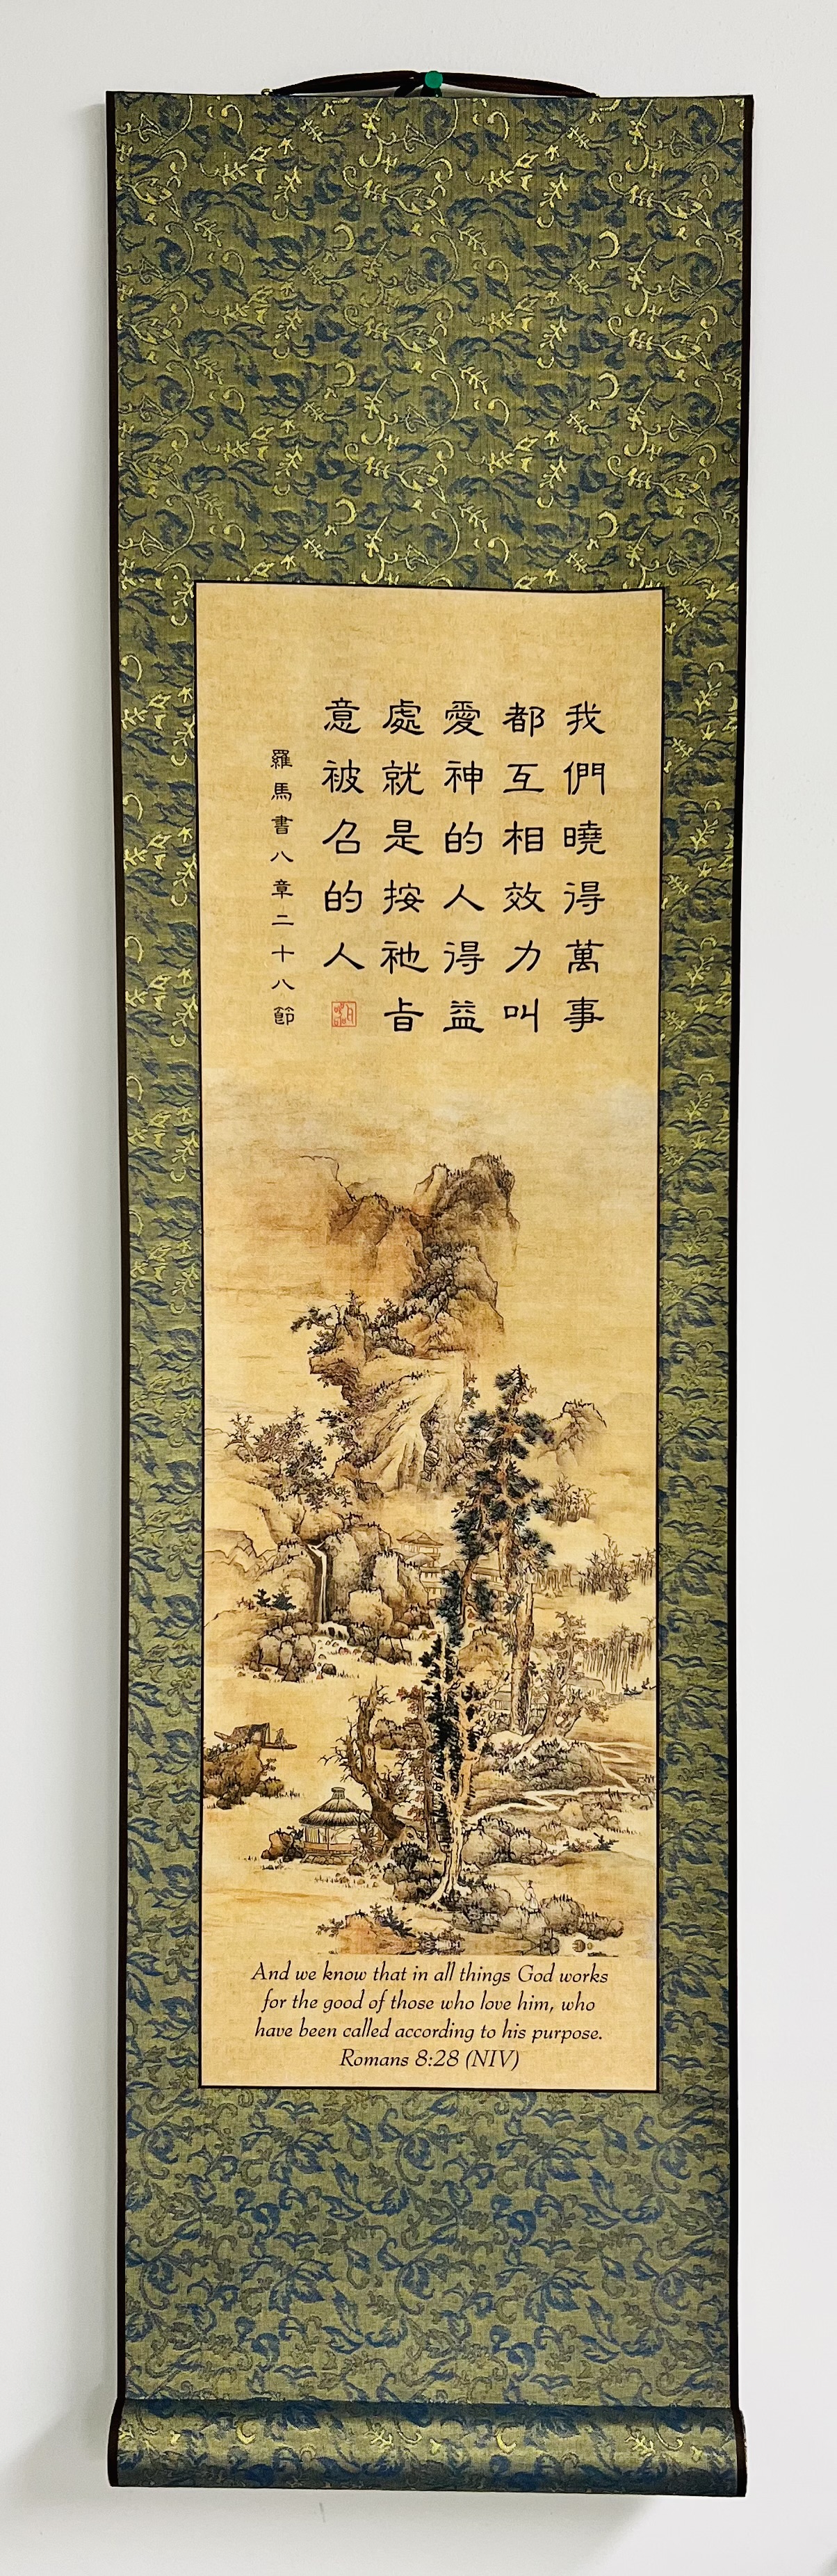 我們曉得萬事
都互相效力叫
愛神的人得益
處就是按祂旨
意被召的人
羅馬書八章二十八節
And we know that in all things God works
for the good of those who love him, who
have been called according to his purpose.
Romans 8:28 (NIV)